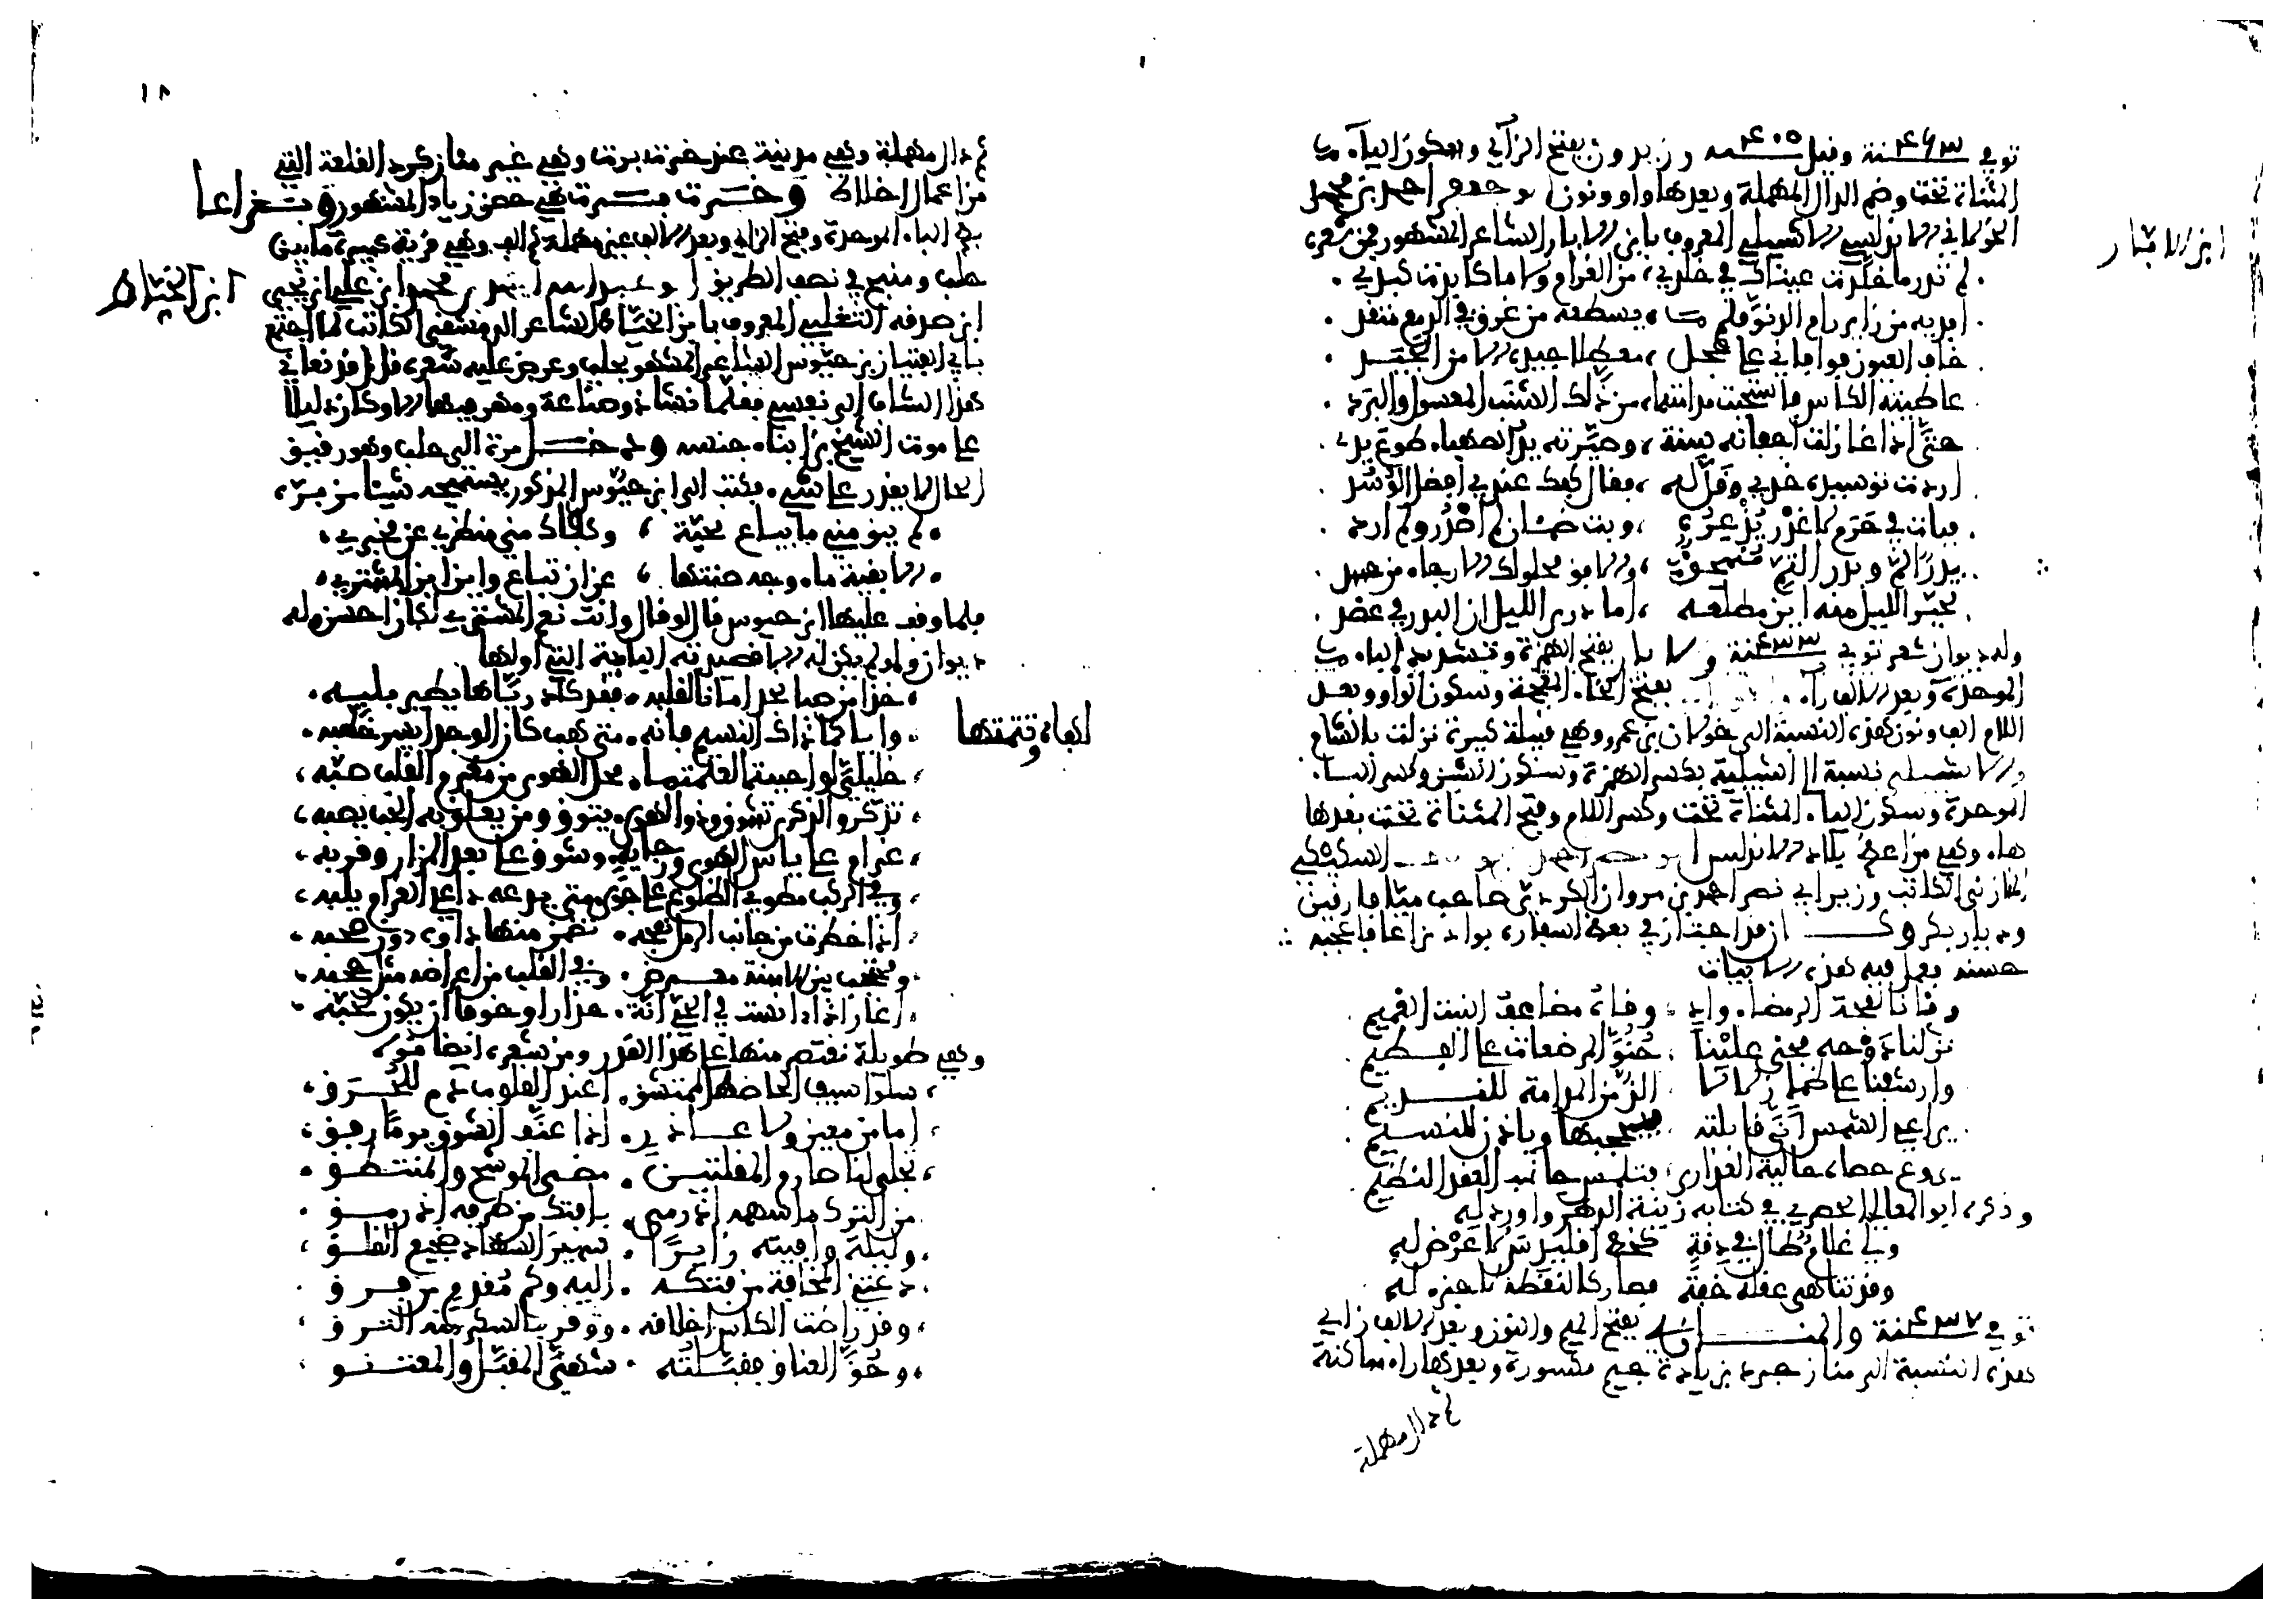 توفي ٤٦٣ سنة وقيل ٤٠٥ سنة وزيدون بفتح الزاي وسكون الياء
المثناة تحت وضم الدال المهملة وبعدها واو ونون أبو جعفر احمد بن محمد
الخولاني الاندلسي الاشبيلي المعروف بابن الابار الشاعر المشهور فمن شعره
لم تدر ما خلدت عيناك في خلدي، من الغرام ولا ما كابدت كبدي
افديه من زاير رام الدنو فلم، يسطعه من غرق في الدمع متقد
خاف العيون فوافاني على عجل، معطلا جيده الا من الجيد
عاطيته الكأس فاستحيت مدامتها، من ذلك الشنب المعسول والبرد
حتى اذا غازلت اجفانه سنة، وصيرته يد الصهباء طوع يدي
اردت توسيده خدي وقل له، فقال كفك عندي افضل الوسد
فبات في حرم لا غدر يذعره، وبت ظمآن لم اصدر ولم ارد
بدر الم وبدر التم ممحوق، والافق محلولك الارجاء من حسد
تحير الليل منه اين مطلعه، اما درى الليل ان البدر في عضدي
وله ديوان شعر توفي ٤٣٣ سنة والابار بفتح الهمزة وتشديد الباء
الموحدة وبعد الالف راء بفتح الخاء المعجمة وسكون الواو وبعد
اللام الف ونون هذه النسبة الى خولان بن عمرو وهي قبيلة كبيرة نزلت بالشام
والاشبيلي نسبة الى اشبيلية بكسر الهمزة وسكون الشين وكسر الباء
الموحدة وسكون الياء المثناة تحت وكسر اللام وفتح المثناة تحت بعدها
هاء وهي من اعظم بلاد الاندلس أبو نصر احمد بن يوسف السليكي
المنازي الكاتب وزير ابي نصر احمد بن مروان الكردي صاحب ميافارقين
وديار بكر وكان قد اجتاز في بعض اسفاره بوادي بزاعا فاعجبه
حسنه فعمل فيه هذه الابيات
وقانا لفحة الرمضاء واد، وقاه مضاعف النبت العميم
نزلنا دوحه فحنى علينا، حنو المرضعات على الفطيم
وارشفنا على ظمأ زلالا، الذ من المدامة للنديم
يراعي الشمس انى قابلته، فيحجبها وياذن للنسيم
يروع حصاه حالية العذارى، فتلمس جانب العقد النظيم
وذكره ابو المعالي الحظيري في كتابه زينة الدهر واورد له
ولي غلام طال في دقة كخط اقليدس لا عرض له
وقد تناهى عقله خفة فصار كالنقطة لا جزء له
توفي ٤٣٧ سنة والمنازي بفتح الميم والنون وبعد الالف زاي
هذه النسبة الى منازجرد بزيادة جيم مكسورة وبعدها راء ساكنة
ثم دال مهملة
ابن الابار
١٨
ثم دال مهملة وهي مدينة عند خرتبرت وهي غير منازكرد القلعة التي
من اعمال اخلاط وخرتبرت هي حصن زياد المشهور وبزاعا
بضم الباء الموحدة وفتح الزاي وبعد الالف عين مهملة ثم الف وهي قرية كبيرة ما بين
حلب ومنبج في نصف الطريق أبو عبد الله احمد بن محمد ابن علي ابن يحيى
ابن صدقه التغلبي المعروف بابن الخياط الشاعر الدمشقي الكاتب لما اجتمع
بابي الفتيان بن حيوس الشاعر المشهور بحلب وعرض عليه شعره قال قد نعاني
هذا الشاب الى نفسي فقلما نشا ذو صناعة ومهر فيها الا وكان دليلا
على موت الشيخ من ابناء جنسه ودخل مرة الى حلب وهو رقيق
الحال لا يقدر على شيء فكتب الى ابن حيوس المذكور يستميحه شيئا من بره
لم يبق مني ما يباع بحبة، وكفاك مني منظري عن مخبري
الا بقية ماء وجه صنتها، عن ان تباع واين اين المشتري
فلما وقف عليها ابن حيوس قال لو قال وانت نعم المشتري لكان احسن وله
ديوان ولو لم يكن له الا قصيدته البايية التي اولها
خذا من صبا نجد امانا لقلبه، فقد كاد رياها يطير بلبه
واياكما ذاك النسيم فانه، متى هب كان الوجد ايسر خطبه
خليلي لو احببتما لعلمتما، محل الهوى من مغرم القلب صبه
تذكر والذكرى تشوق وذو الهوى يتوق ومن يعلق به الحب يصبه
غرام على ياس الهوى ورجايه، وشوق على بعد المزار وقربه
وفي الركب مطوي الضلوع على جوى متى يدعه داعي الغرام يلبه
اذا خطرت من جانب الرمل نفحة، تضمن منها داوه دون صحبه
ومحتجب بين الاسنة معرض، وفي القلب من اعراضه مثل حجبه
اغار اذا انست في الحي انة، حذارا وخوفا ان يكون لحبه
وهي طويلة نقتصر منها على هذا القدر ومن شعره ايضا قوله
سلوا سيف الحاظه الممتشق، اعند القلوب دم للحدق
اما من معين ولا عاذر، اذا عنف الشوق يوما رفق
تجلى لنا صارم المقلتين، مضنى الموشح والمنتطق
من الترك ما سهمه اذ رمى، بافتك من طرفه اذ رمق
وليلة وافيته زايرا، سمير السهاد ضجيع القلق
دعتني المخافة من فتكه، اليه وكم مقدم من فرق
وقد راضت الكاس اخلافه، ووقر بالسكر منه النزق
وحق العناق فقبلته، شهي المقبل والمعتنق
ابن الخياط
الباء وتتمتها